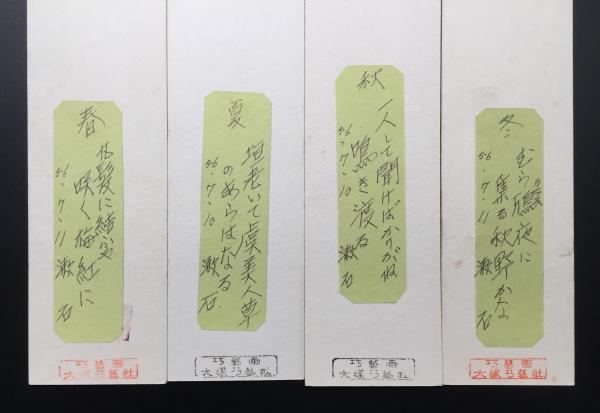 春
髪に結
咲く梅紅に
56.7.11 漱石
巧藝画
大塚巧藝社
夏
垣老いて虞美人草
のあらはなる
56.7.10 漱石
巧藝画
大塚巧藝社
秋
一人して聞けばかりがね
鳴き渡る
56.7.10 漱石
巧藝画
大塚巧藝社
冬
むら 夜に
集る秋野かな
56.7.11 漱石
巧藝画
大塚巧藝社